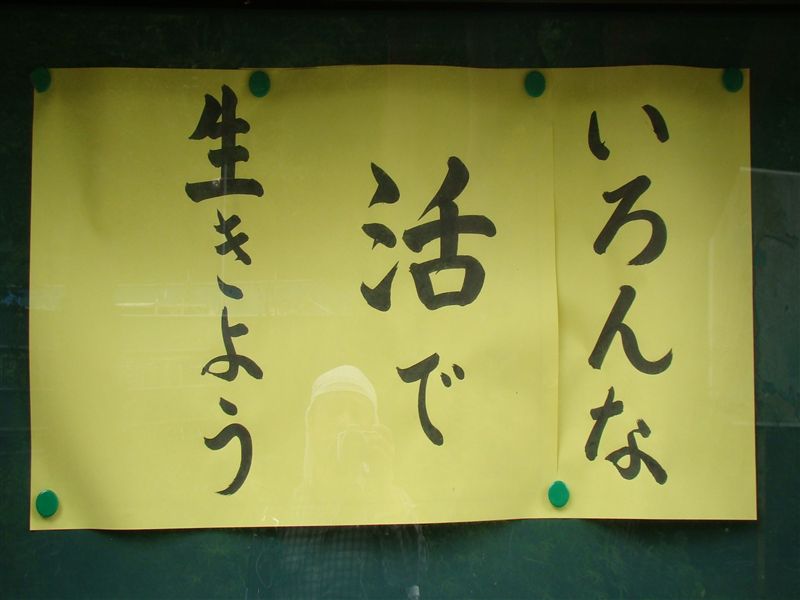 いろんな
活で
生きよう